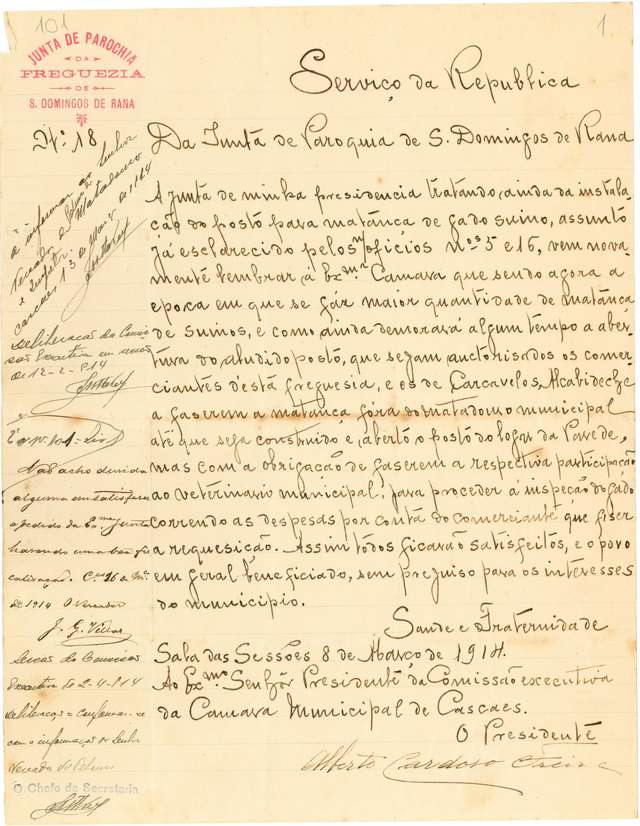 101
1.
JUNTA DE PAROCHIA
DA
FREGUEZIA
DE
S. DOMINGOS DE RANA
Serviço da Republica
Nº 18
Da Junta de Paroquia de S. Domingos de Rana
A junta de minha presidencia tratando, ainda da instala-
ção do posto para matança de gado suino, assunto
já esclarecido pelos officios nos 5 e 16, vem nova-
mente lembrar á Exma Camara que sendo agora a
epoca em que se faz maior quantidade de matança
de suinos, e como ainda demorará algum tempo a aber-
tura do aludido posto, que sejam auctorisados os comer-
ciantes désta freguesia, e os de Carcavelos, Alcabideche
a faserem a matança fóra do matadouro municipal
até que seja construido e aberto o posto do logar da Parede,
mas com a obrigação de faserem a respectiva participação
ao veterinario municipal, para proceder á inspeção do gado
correndo as despesas por conta do comerciante que fiser
a requesição. Assim todos ficarão satisfeitos, e o povo
em geral beneficiado, sem prejuiso para os interesses
do municipio.
Saude e Fraternidade
Sala das Sessões 8 de Março de 1914.
Ao Exmo Senhôr Presidente da Comissão executiva
da Camara Municipal de Cascaes.
O Presidente
Alberto Cardoso
A informar ao Senhor
Vereador do Pelouro
Matadouro
Cascaes 13 de de 1914
Deliberação da Comis-
são Executiva em
de 12-2-914
Não acho duvida
alguma em satisfazer
o pedido da Exma Junta
havendo uma boa fis-
calisação. 26 de
de 1914 O Vereador
J. G. Villar
da Comissão
Executiva de 2-4-914
Deliberação conforma-se
com a informação do Senhor
Vereador do Pelouro
O Chefe da Secretaria